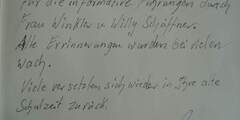 für die informative Führungen durch
Frau Winkler u. Willy Schäffner.
Alte Errinnerungen wurden bei vielen
wach.
Viele versetzten sich wieder in Ihre alte
Schulzeit zurück.